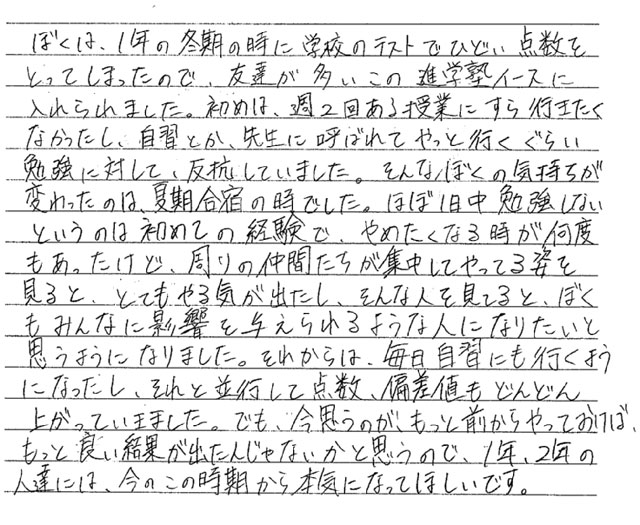 ぼくは、1年の冬期の時に学校のテストでひどい点数を
とってしまったので、友達が多いこの進学塾イースに
入れられました。初めは、週2回ある授業にすら行きたく
なかったし、自習とか、先生に呼ばれてやっと行くぐらい
勉強に対して、反抗していました。そんなぼくの気持ちが
変わったのは、夏期合宿の時でした。ほぼ1日中勉強しない
というのは初めての経験で、やめたくなる時が何度
もあったけど、周りの仲間たちが集中してやってる姿を
見ると、とてもやる気が出たし、そんな人を見てると、ぼく
もみんなに影響を与えられるような人になりたいと
思うようになりました。それからは、毎日自習にも行くよう
になったし、それと並行して点数、偏差値もどんどん
上がっていきました。でも、今思うのが、もっと前からやっておけば、
もっと良い結果が出たんじゃないかと思うので、1年、2年の
人達には、今のこの時期から本気になってほしいです。